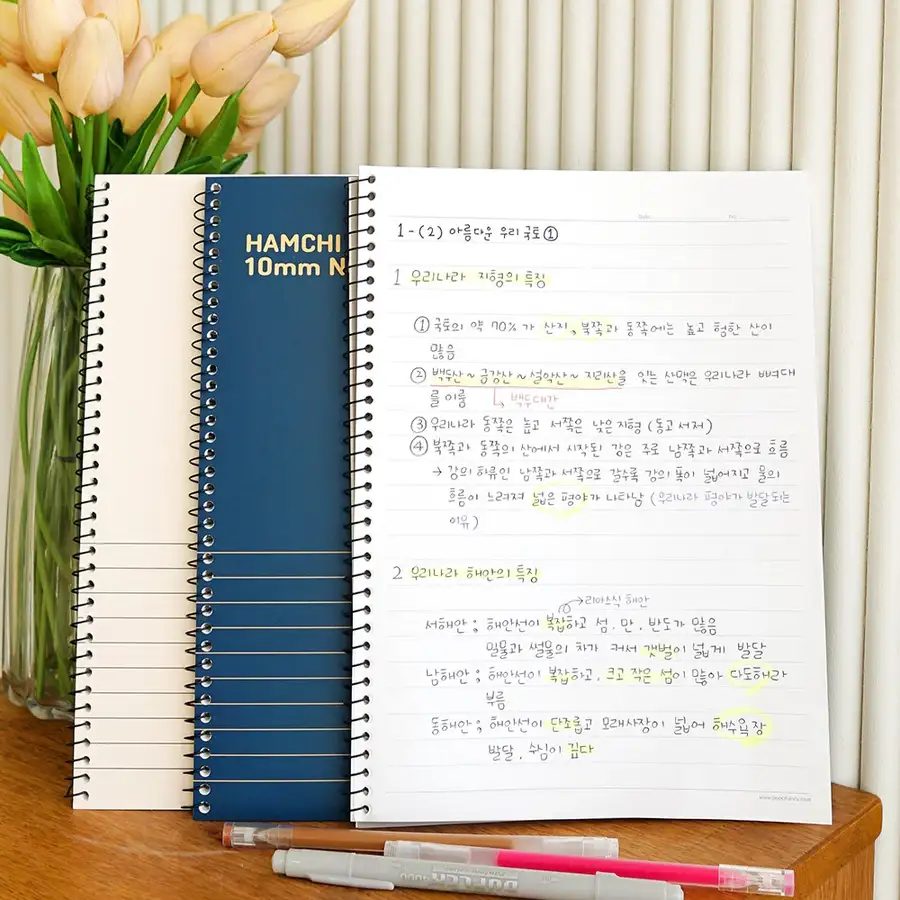 HAMCHI
10mm N
Date.
No.
1-(2) 아름다운 우리 국토①
1 우리나라 지형의 특징
① 국토의 약 70%가 산지, 북쪽과 동쪽에는 높고 험한 산이
많음
② 백두산~금강산~설악산~지리산을 잇는 산맥은 우리나라 뼈대
를 이룸 ↳ 백두대간
③ 우리나라 동쪽은 높고 서쪽은 낮은 지형 (동고서저)
④ 북쪽과 동쪽의 산에서 시작된 강은 주로 남쪽과 서쪽으로 흐름
→ 강의 하류인 남쪽과 서쪽으로 갈수록 강의 폭이 넓어지고 물의
흐름이 느려져 넓은 평야가 나타남 (우리나라 평야가 발달되는
이유)
2 우리나라 해안의 특징
→리아스식 해안
서해안 ; 해안선이 복잡하고 섬, 만, 반도가 많음
밀물과 썰물의 차가 커서 갯벌이 넓게 발달
남해안 ; 해안선이 복잡하고, 크고 작은 섬이 많아 다도해라
부름
동해안 ; 해안선이 단조롭고 모래사장이 넓어 해수욕장
발달, 수심이 깊다